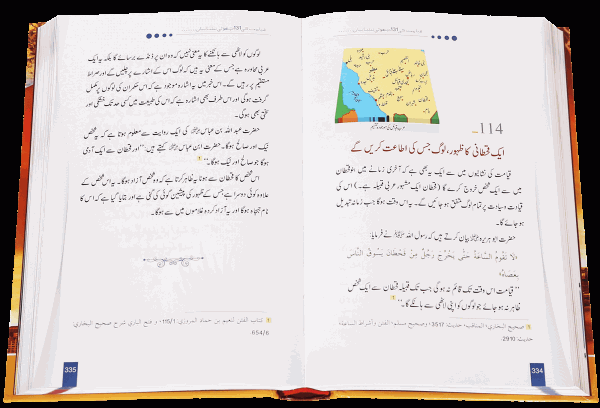 114
ایک قحطانی کا ظہور، لوگ جس کی اطاعت کریں گے
قیامت کی نشانیوں میں سے ایک یہ بھی ہے کہ آخری زمانے میں بنو قحطان
میں سے ایک شخص خروج کرے گا (قحطان ایک مشہور عربی قبیلہ ہے۔) اس کی
قیادت و سیادت پر تمام لوگ متفق ہو جائیں گے۔ یہ اس وقت ہوگا جب زمانہ تبدیل
ہو جائے گا۔
حضرت ابو ہریرہ بیان کرتے ہیں کہ رسول اللہ نے فرمایا:
«لَا تَقُومُ السَّاعَةُ حَتَّى يَخْرُجَ رَجُلٌ مِنْ قَحْطَانَ يَسُوقُ النَّاسَ
بِعَصَاهُ»
"قیامت اس وقت تک قائم نہ ہوگی جب تک قبیلہ قحطان سے ایک شخص
ظاہر نہ ہو جائے جو لوگوں کو اپنی لاٹھی سے ہانکے گا۔"
صحيح البخاري، المناقب، حديث: 3517، وصحيح مسلم، الفتن وأشراط الساعة،
حديث: 2910.
334
لوگوں کو لاٹھی سے ہانکنے کا یہ معنی نہیں کہ وہ ان پر ڈنڈے برسائے گا بلکہ یہ ایک
عربی محاورہ ہے جس کے معنی یہ ہیں کہ لوگ اس کے اشارے پر چلیں گے اور صراط
مستقیم پر رہیں گے۔ اس خبر میں یہ اشارہ موجود ہے کہ اس حکمران کی لوگوں پر مکمل
گرفت ہوگی اور اس طرف بھی اشارہ ہے کہ اس کی طبیعت میں کسی حد تک خشکی اور
سختی بھی ہوگی۔
حضرت عبد اللہ بن عباس کی ایک روایت سے معلوم ہوتا ہے کہ یہ شخص
نیک اور صالح ہوگا۔ حضرت ابن عباس کہتے ہیں: "اور قحطان سے ایک آدمی
ہوگا جو صالح اور نیک ہوگا۔"
اس شخص کا قحطان سے ہونا یہ ظاہر کرتا ہے کہ وہ شخص آزاد ہوگا۔ یہ اس شخص کے
علاوہ کوئی دوسرا ہے جس کے ظہور کی پیشین گوئی کی گئی ہے اور بتایا گیا ہے کہ اس کا
نام جہجاہ ہوگا اور یہ آزاد کردہ غلاموں میں سے ہوگا۔
كتاب الفتن لنعيم بن حماد المروزي: 115/1، و فتح الباري شرح صحيح البخاري:
654/6.
335